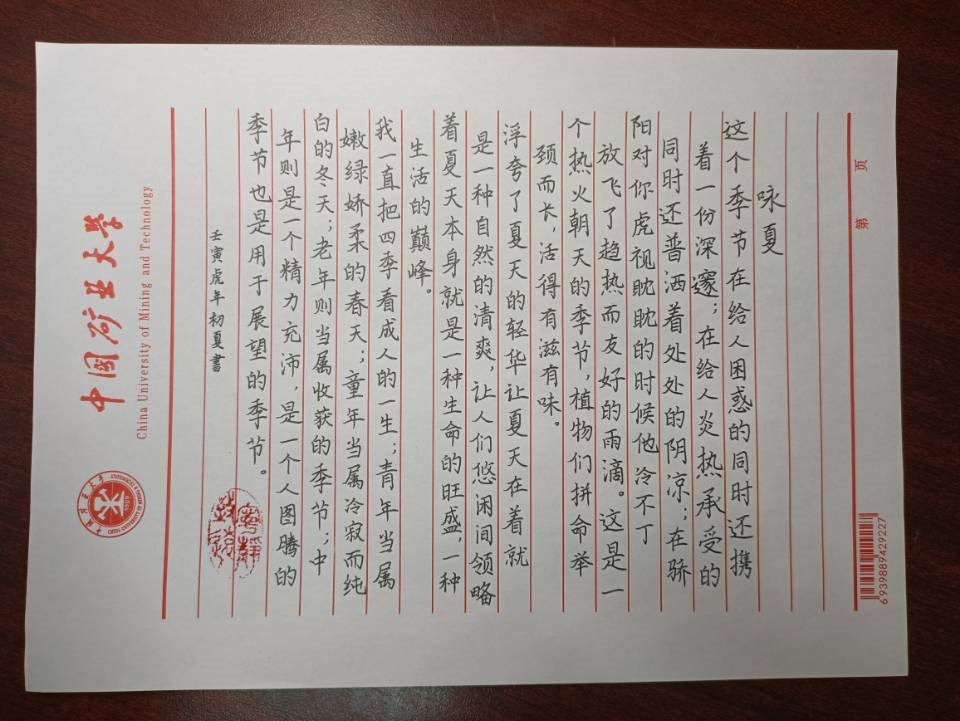 第 页
咏夏
这个季节在给人困惑的同时还携
着一份深邃；在给人炎热承受的
同时还普洒着处处的阴凉；在骄
阳对你虎视眈眈的时候他冷不丁
放飞了趋热而友好的雨滴。这是一
个热火朝天的季节，植物们拼命举
颈而长，活得有滋有味。
浮夸了夏天的轻华让夏天在着就
是一种自然的清爽，让人们悠闲间领略
着夏天本身就是一种生命的旺盛，一种
生活的巅峰。
我一直把四季看成人的一生；青年当属
嫩绿娇柔的春天；童年当属冷寂而纯
白的冬天；老年则当属收获的季节；中
年则是一个精力充沛，是一个人图腾的
季节也是用于展望的季节。
壬寅虎年初夏書
中国矿业大学
China University of Mining and Technology
6939889429227